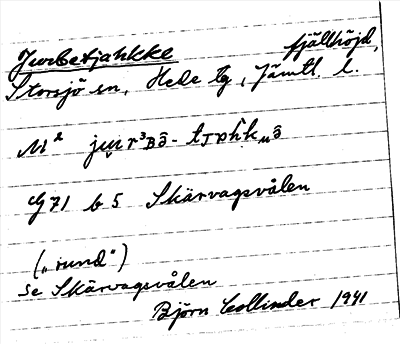 Jurbetjahkke fjällhöjd,
Storsjö sn, Hede tg, Jämtl. l.
G 71 b 5 Skärvagsvålen
("rund")
se Skärvagsvålen
Björn Collinder 1941